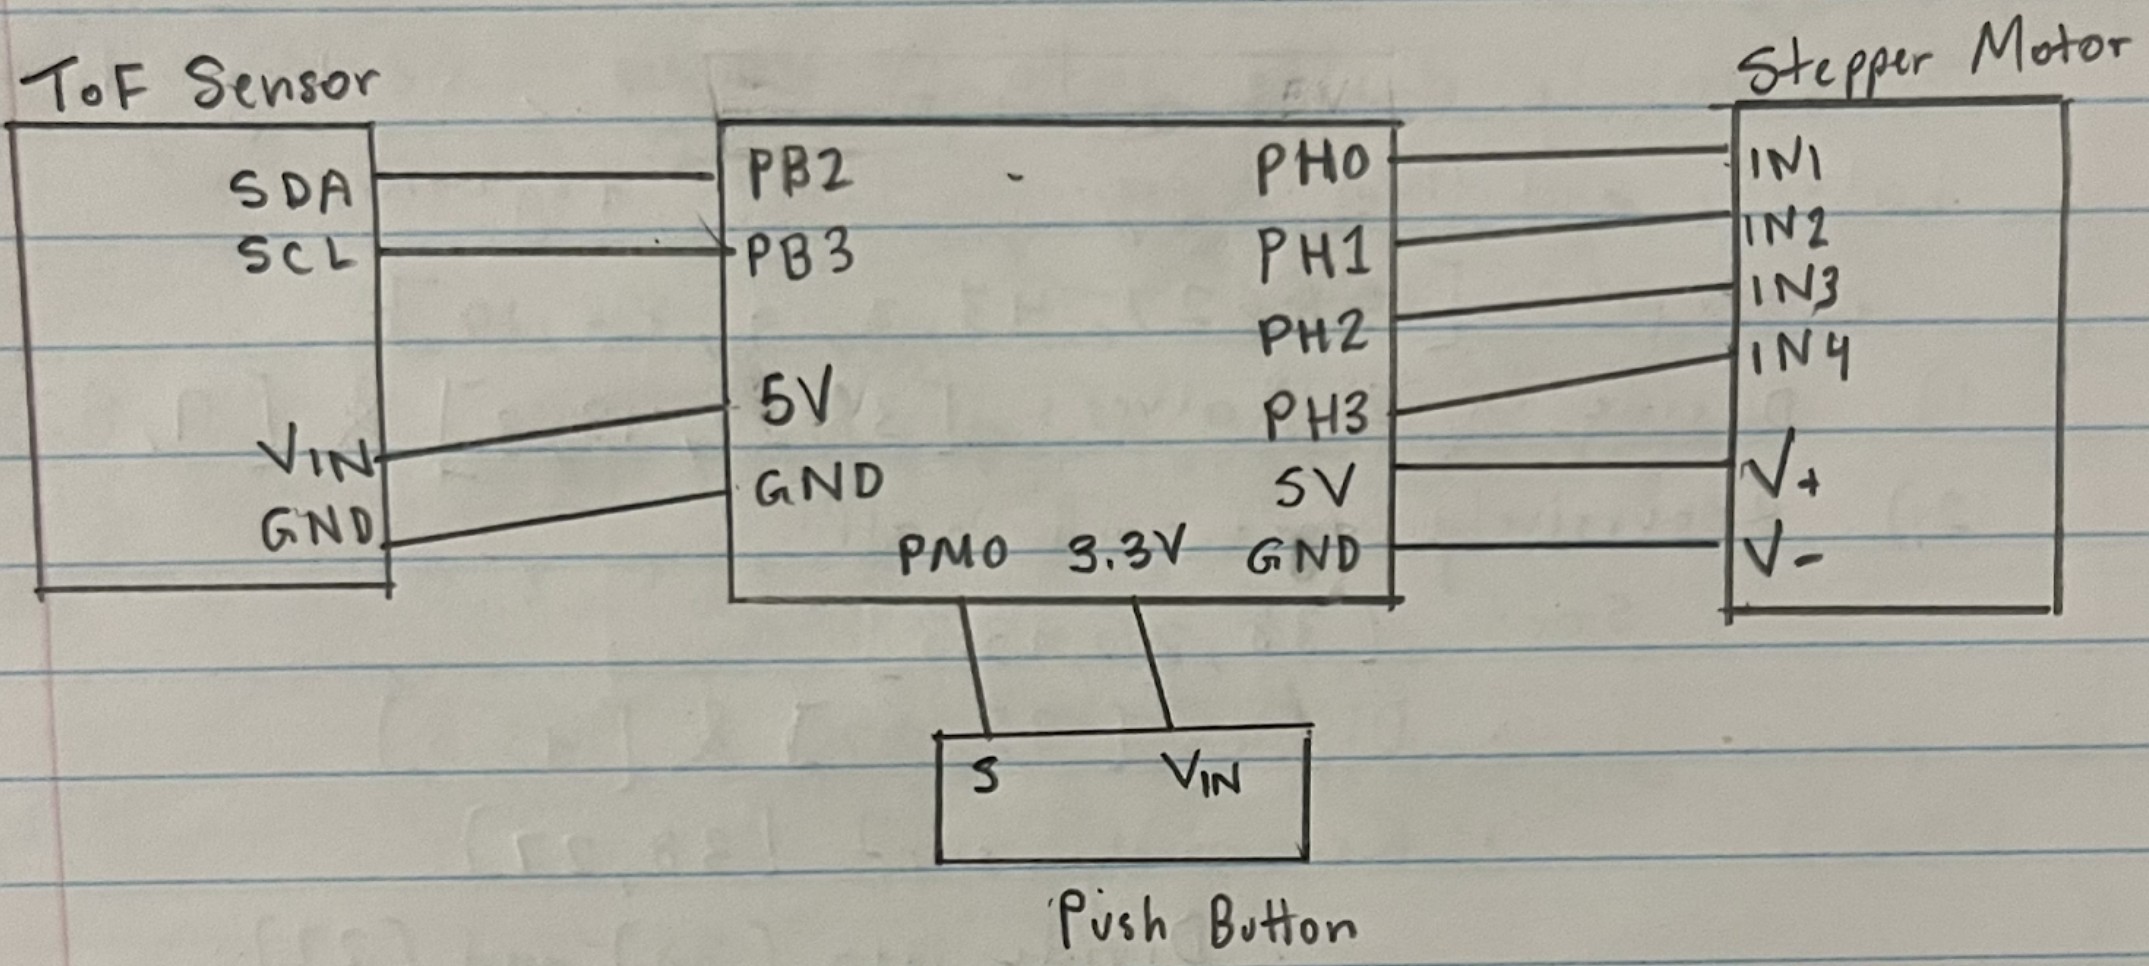 ToF Sensor
Stepper Motor
SDA
SCL
VIN
GND
PB2
PB3
5V
GND
PM0
3.3V
PH0
PH1
PH2
PH3
5V
GND
IN1
IN2
IN3
IN4
V+
V-
S
VIN
Push Button